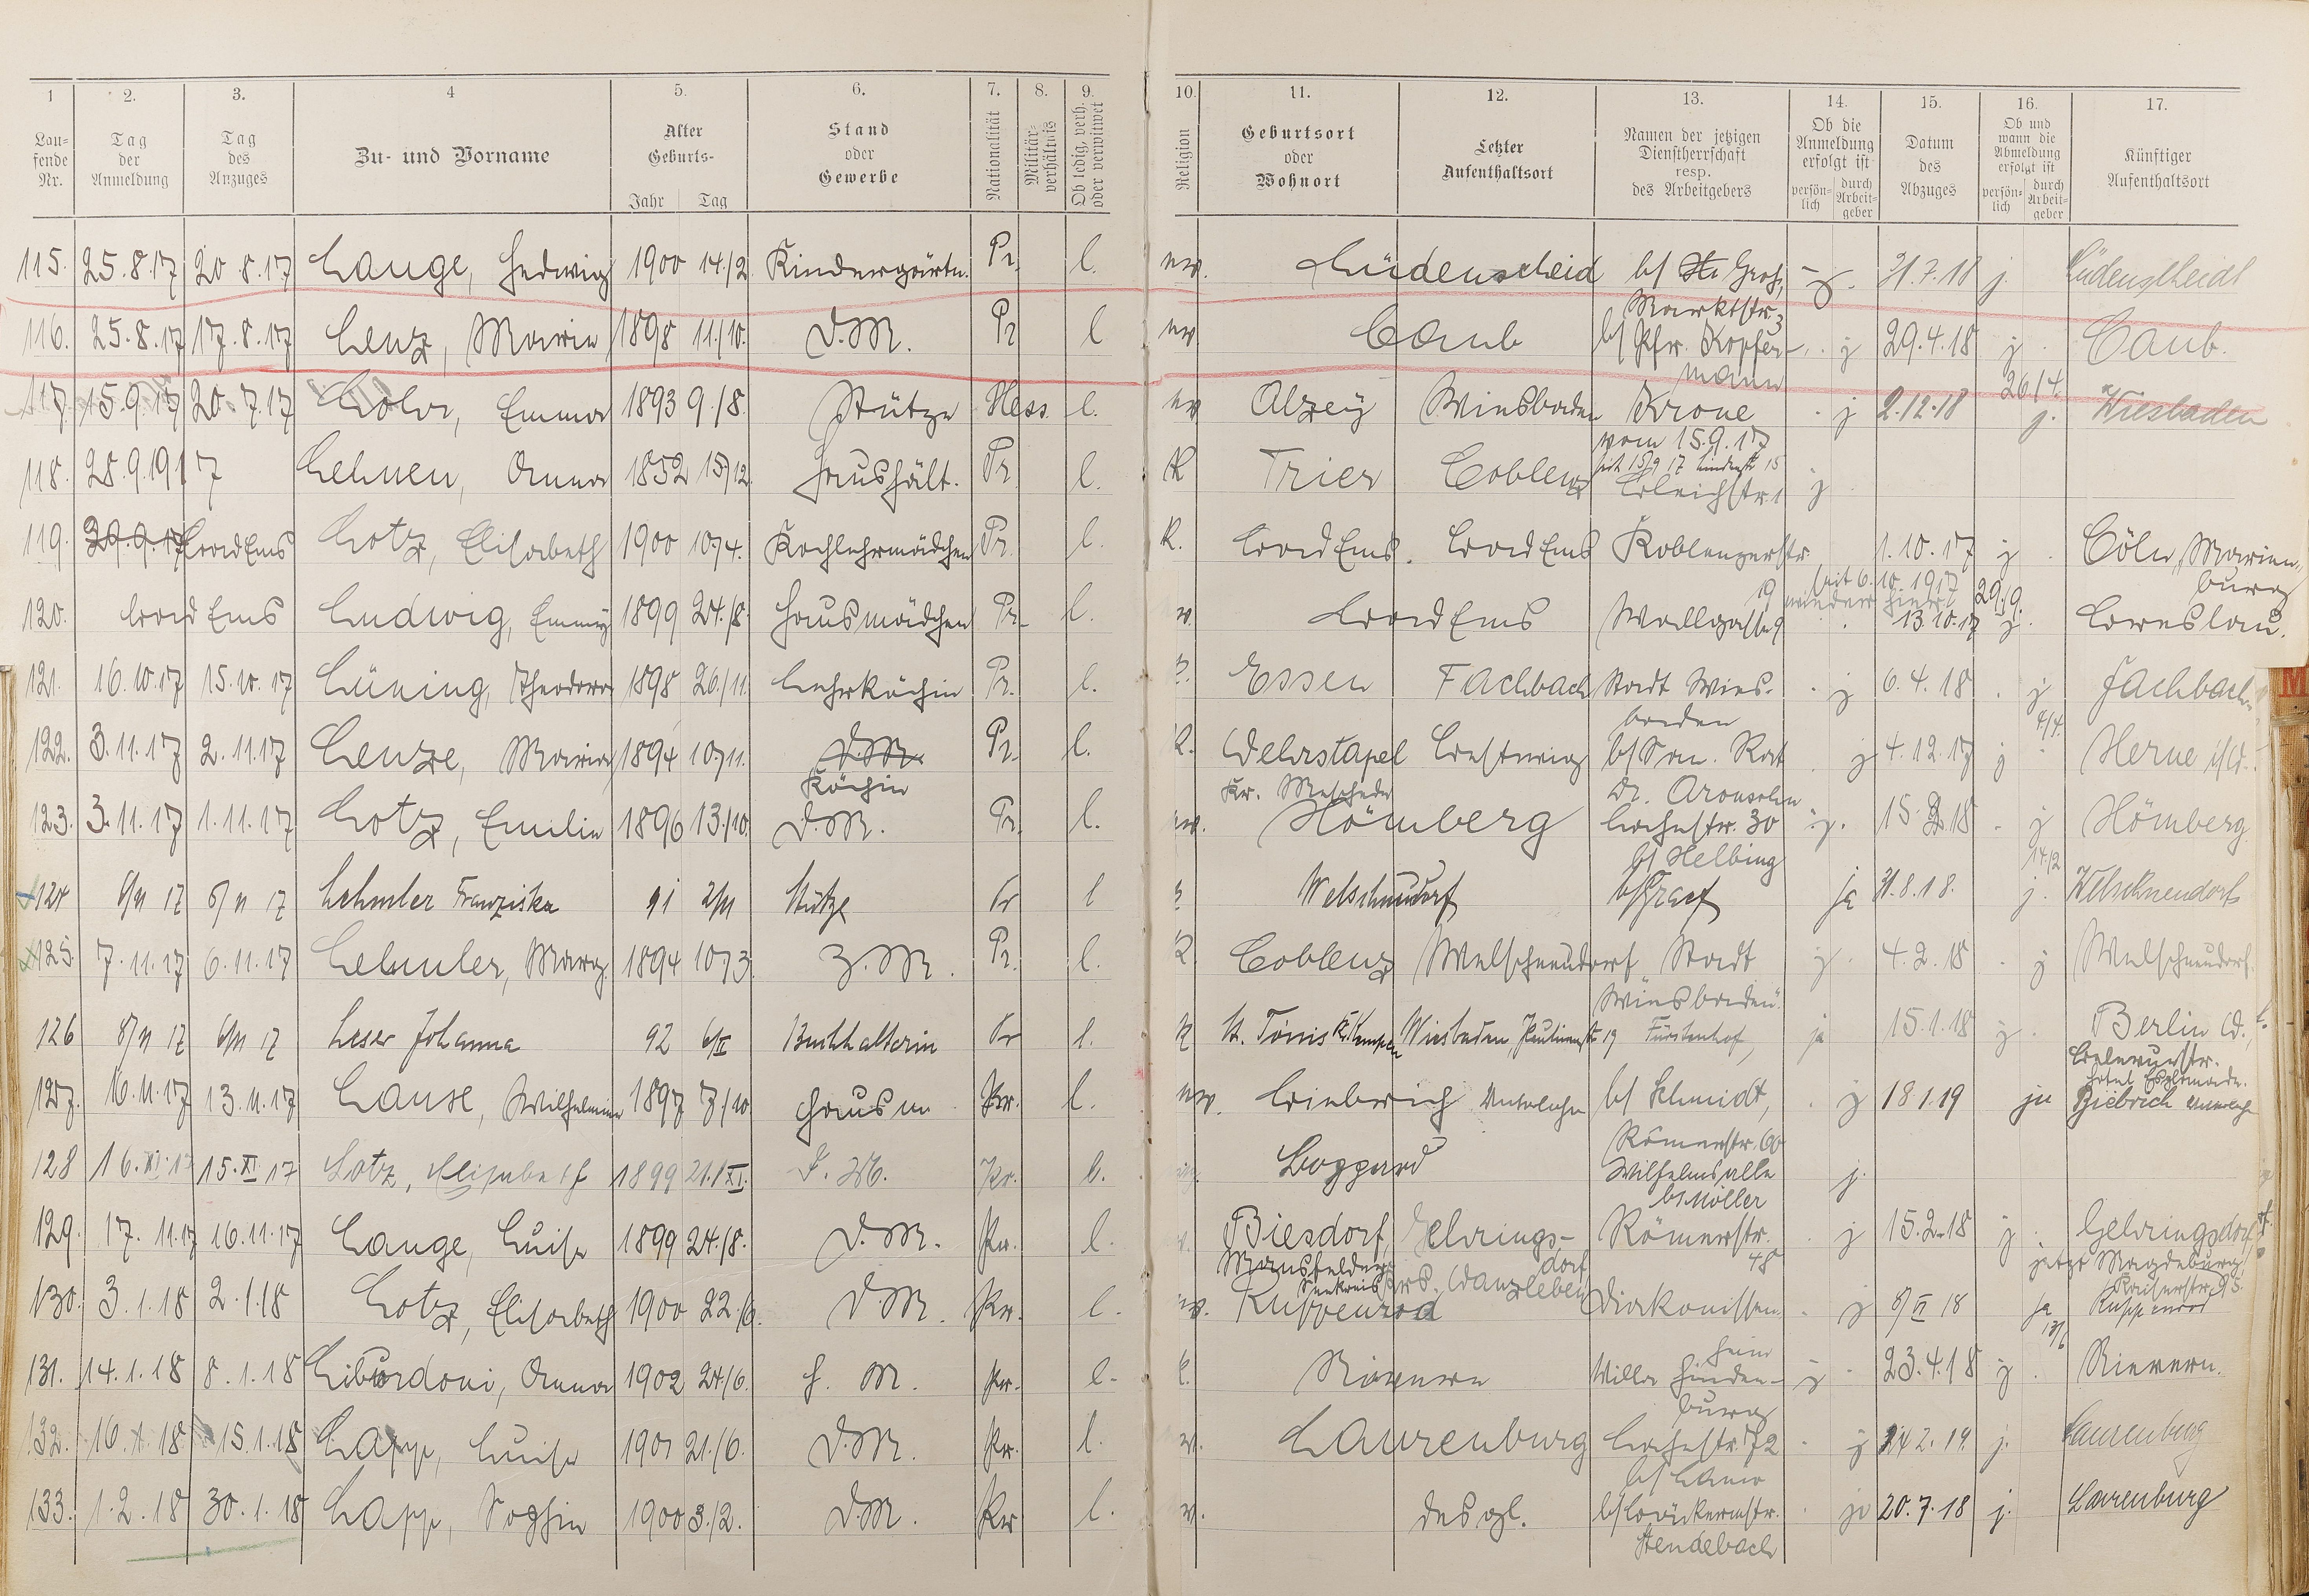 1 2. 3. 4 5. 6. 7. 8. 9. 10. 11. 12. 13. 14. 15. 16. 17.
Lau-
fende
Nr.
Tag
der
Anmeldung
Tag
des
Anzuges
Zu- und Vorname
Alter
Geburts-
Jahr Tag
Stand
oder
Gewerbe
Nationalität
Militär-
verhältnis
Ob ledig, verh.
oder verwitwet
Religion
Geburtsort
oder
Wohnort
Letzter
Aufenthaltsort
Namen der jetzigen
Dienstherrschaft
resp.
des Arbeitgebers
Ob die
Anmeldung
erfolgt ist
persön-
lich
durch
Arbeit-
geber
Datum
des
Abzuges
Ob und
wann die
Abmeldung
erfolgt ist
persön-
lich
durch
Arbeit-
geber
Künftiger
Aufenthaltsort
115. 25.8.17 20.8.17 Lange, Hedwig 1900 14./2 Kindergärtn. Pr. l. ev. Lüdenscheid b/ Gros, j. 31.7.18 j. Lüdenscheidt
Marktstr. 3
116. 25.8.17 17.8.17 Lenz, Marie 1898 11./10. D.M. Pr l ev Caub b/ Pfr. Kopfer- j 29.4.18 j. Caub.
mann 26/4.
117. 15.9.17 20.7.17 Löhr, Emma 1893 9./8. Stütze Hess. l. ev Alzey Wiesbaden Krone j 2.12.18 j. Wiesbaden
vom 15.9.17
118. 28.9.1917 Lehnen, Anna 1852 15/12. Haushält. Pr. l. K Trier Coblenz seit 15/9 17 Lindenstr 15
Bleichstr. 1 j
119. 29.9.17 Bad Ems Lotz, Elisabeth 1900 10/4. Kochlehrmädchen Pr. l. K. Bad Ems. Bad Ems Koblenzerstr. 1.10.17 j Cöln, Marien,
19 seit 6.10.1917 wieder hier! 29/9. burg
120. Bad Ems Ludwig, Emmy 1899 24./8. Hausmädchen Pr. l. Bad Ems Wallgasse 9 13.10.17 j. Breslau.
121. 16.10.17 15.10.17 Lüning, Theodora 1898 26./11. Lehrköchin Pr. l. Essen Fachbach Stadt Wies- j 6.4.18 j Fachbach
baden 4/4.
122. 3.11.17 2.11.17 Lenze, Maria 1894 10/11. D.M. Pr. l. K. Wehrstapel Bestwig b/ San. Rat j 4.12.17 j Herne i/W.
Köchin Kr. Meschede Dr. Aronsohn
123. 3.11.17 1.11.17 Lotz, Emilie 1896 13./10. D.M. Pr. l. ev. Hömberg Lahnstr. 30 j. 15.2.18 j Hömberg.
b/ Helbing 14/2
124 6/11 17 5/11 17 Lehmler Franziska 91 2/11 Stütze Pr l Welschneudorf b/ Graef ja 31.8.18. j. Welschneudorf
125. 7.11.17 6.11.17 Lehmler, Marg. 1894 10/3. Z.M. Pr. l. K. Coblenz Welschneudorf „Stadt j. 4.2.18 j Welschneudorf.
Wiesbaden“
126 8/11 17 6/11 17 Leser Johanna 92 6/II Buchhalterin Pr l. K St. Tönis Kr. Kempen Wiesbaden, Paulinenstr Fürstenhof, ja 15.1.18 j. Berlin W.,
Bülowstr.
127. 16.11.17 13.11.17 Lause, Wilhelmine 1897 7./10 Hausm. Pr. l. ev. Biebrich b/ Schmidt, j 18.1.19 ja Biebrich
Römerstr. 60
128 16.XI.17 15.XI.17 Lotz, Elisabeth 1899 21./XI. D.M. Pr. l. Boppard Wilhelmsalle j.
b/ Möller
129. 17.11.17 16.11.17 Lange, Luise 1899 24./8. D.M. Pr. l. Biesdorf, Gehrings- Römerstr. j 15.2.18 j. Gehringsdorf
Mansfelder dorf 48 jetzt Magdeburg
Seekreis Wanzleben Kaiserstr. 95.
130. 3.1.18 2.1.18 Lotz, Elisabeth 1900 22./6. D.M. Pr. l. ev. Kuppenrod Diakonissen j 8/II 18 ja Kuppenrod
heim 13/6
131. 14.1.18 8.1.18 Libardoni, Anna 1902 24./6. H.M. Pr. l. K. Nievern Villa Hinden- j 23.4.18 j. Nievern.
burg
132. 16.1.18 15.1.18 Lapp, Luise 1901 21./6. D.M. Pr. l. Laurenburg Lahnstr. 72 j 14 2.19. j. Laurenburg
b/ Lanio
133. 1.2.18 30.1.18 Lapp, Sophie 1900 3./2. D.M. Pr l. desgl. b/ Bäckermstr. ja 20.7.18 j. Laurenburg
Stendebach